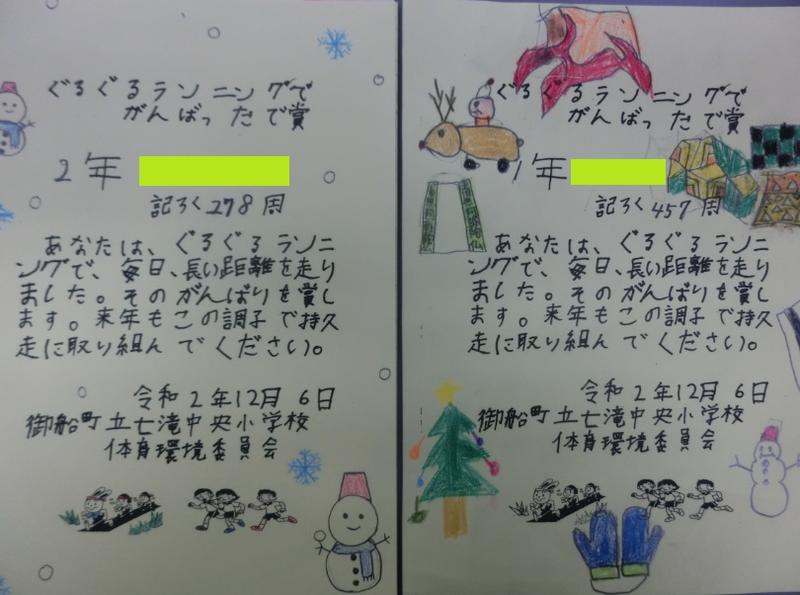 ぐるぐるランニングで
がんばったで賞
2年
記ろく278周
あなたは、ぐるぐるランニ
ングで、毎日、長い距離を走り
ました。そのがんばりを賞し
ます。来年もこの調子で持久
走に取り組んでください。
令和2年12月6日
御船町立七滝中央小学校
体育環境委員会
ぐるぐるランニングで
がんばったで賞
1年
記ろく457周
あなたは、ぐるぐるランニ
ングで、毎日、長い距離を走り
ました。そのがんばりを賞し
ます。来年もこの調子で持久
走に取り組んでください。
令和2年12月6日
御船町立七滝中央小学校
体育環境委員会